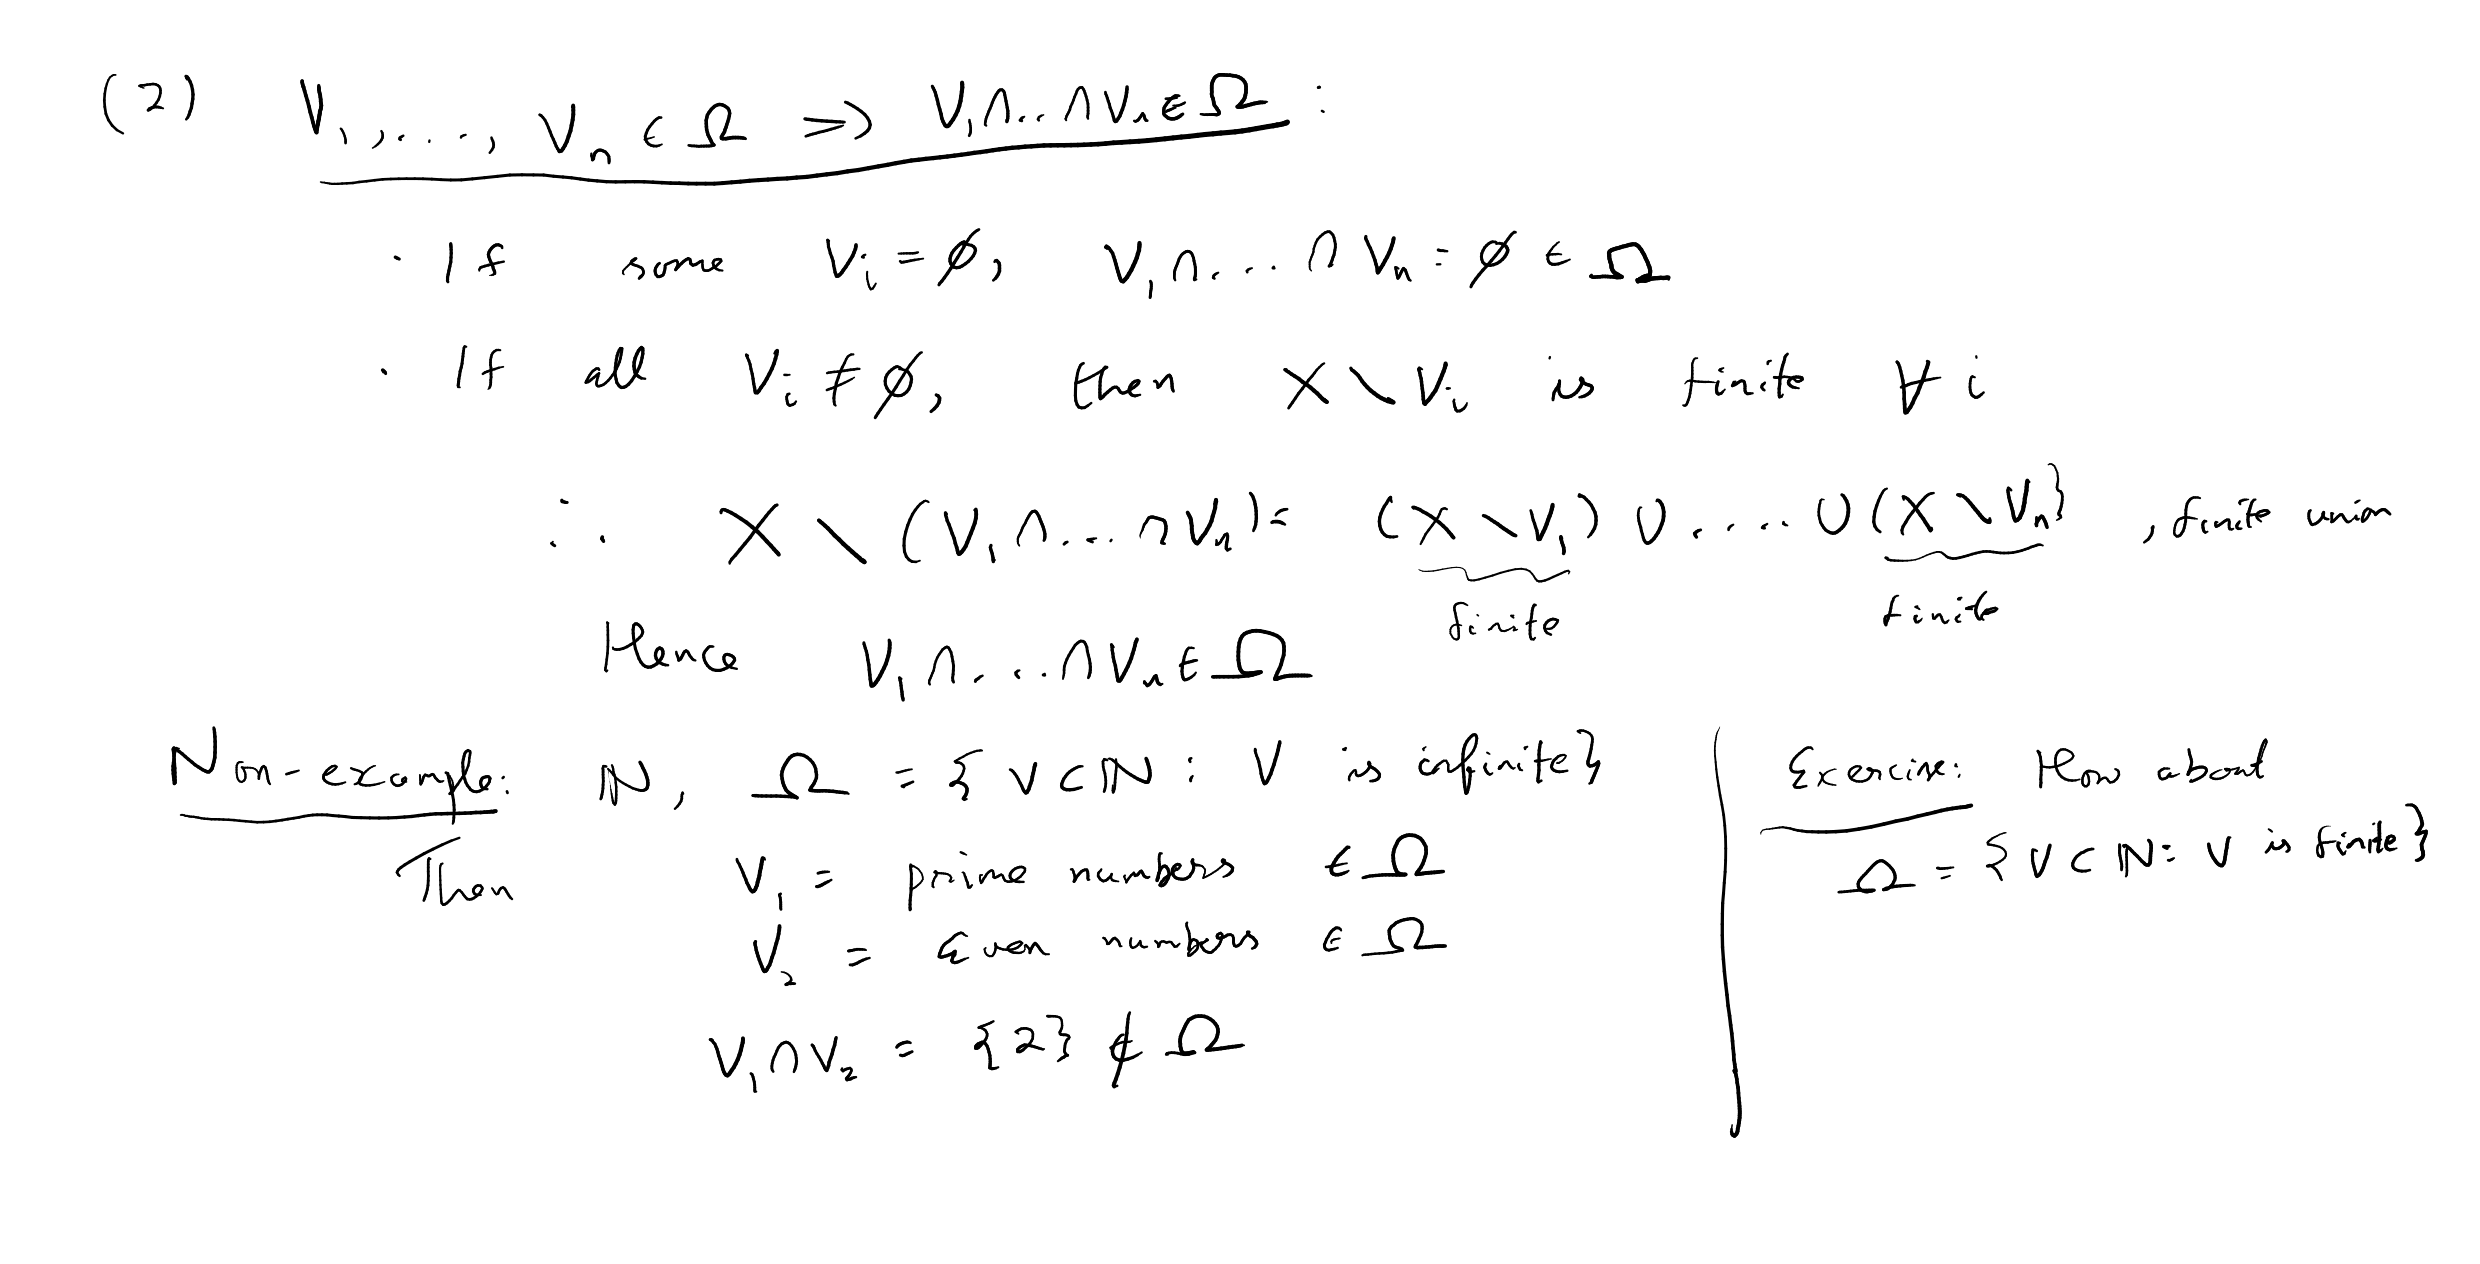 (2) V₁,...., Vₙ ∈ Ω => V₁∩..∩Vₙ∈Ω :
· If some Vᵢ = ∅, V₁∩....∩Vₙ = ∅ ∈ Ω
· If all Vᵢ ≠ ∅, then X∖Vᵢ is finite ∀ i
∴ X∖(V₁∩...∩Vₙ) = (X∖V₁) ∪ .... ∪(X∖Vₙ} , finite union
finite finite
Hence V₁∩....∩Vₙ∈Ω
Non-example: ℕ, Ω = {V⊂ℕ : V is infinite}
Then V₁ = prime numbers ∈ Ω
V₂ = Even numbers ∈ Ω
V₁∩V₂ = {2} ∉ Ω
Exercise: How about
Ω = {V⊂ℕ: V is finite}